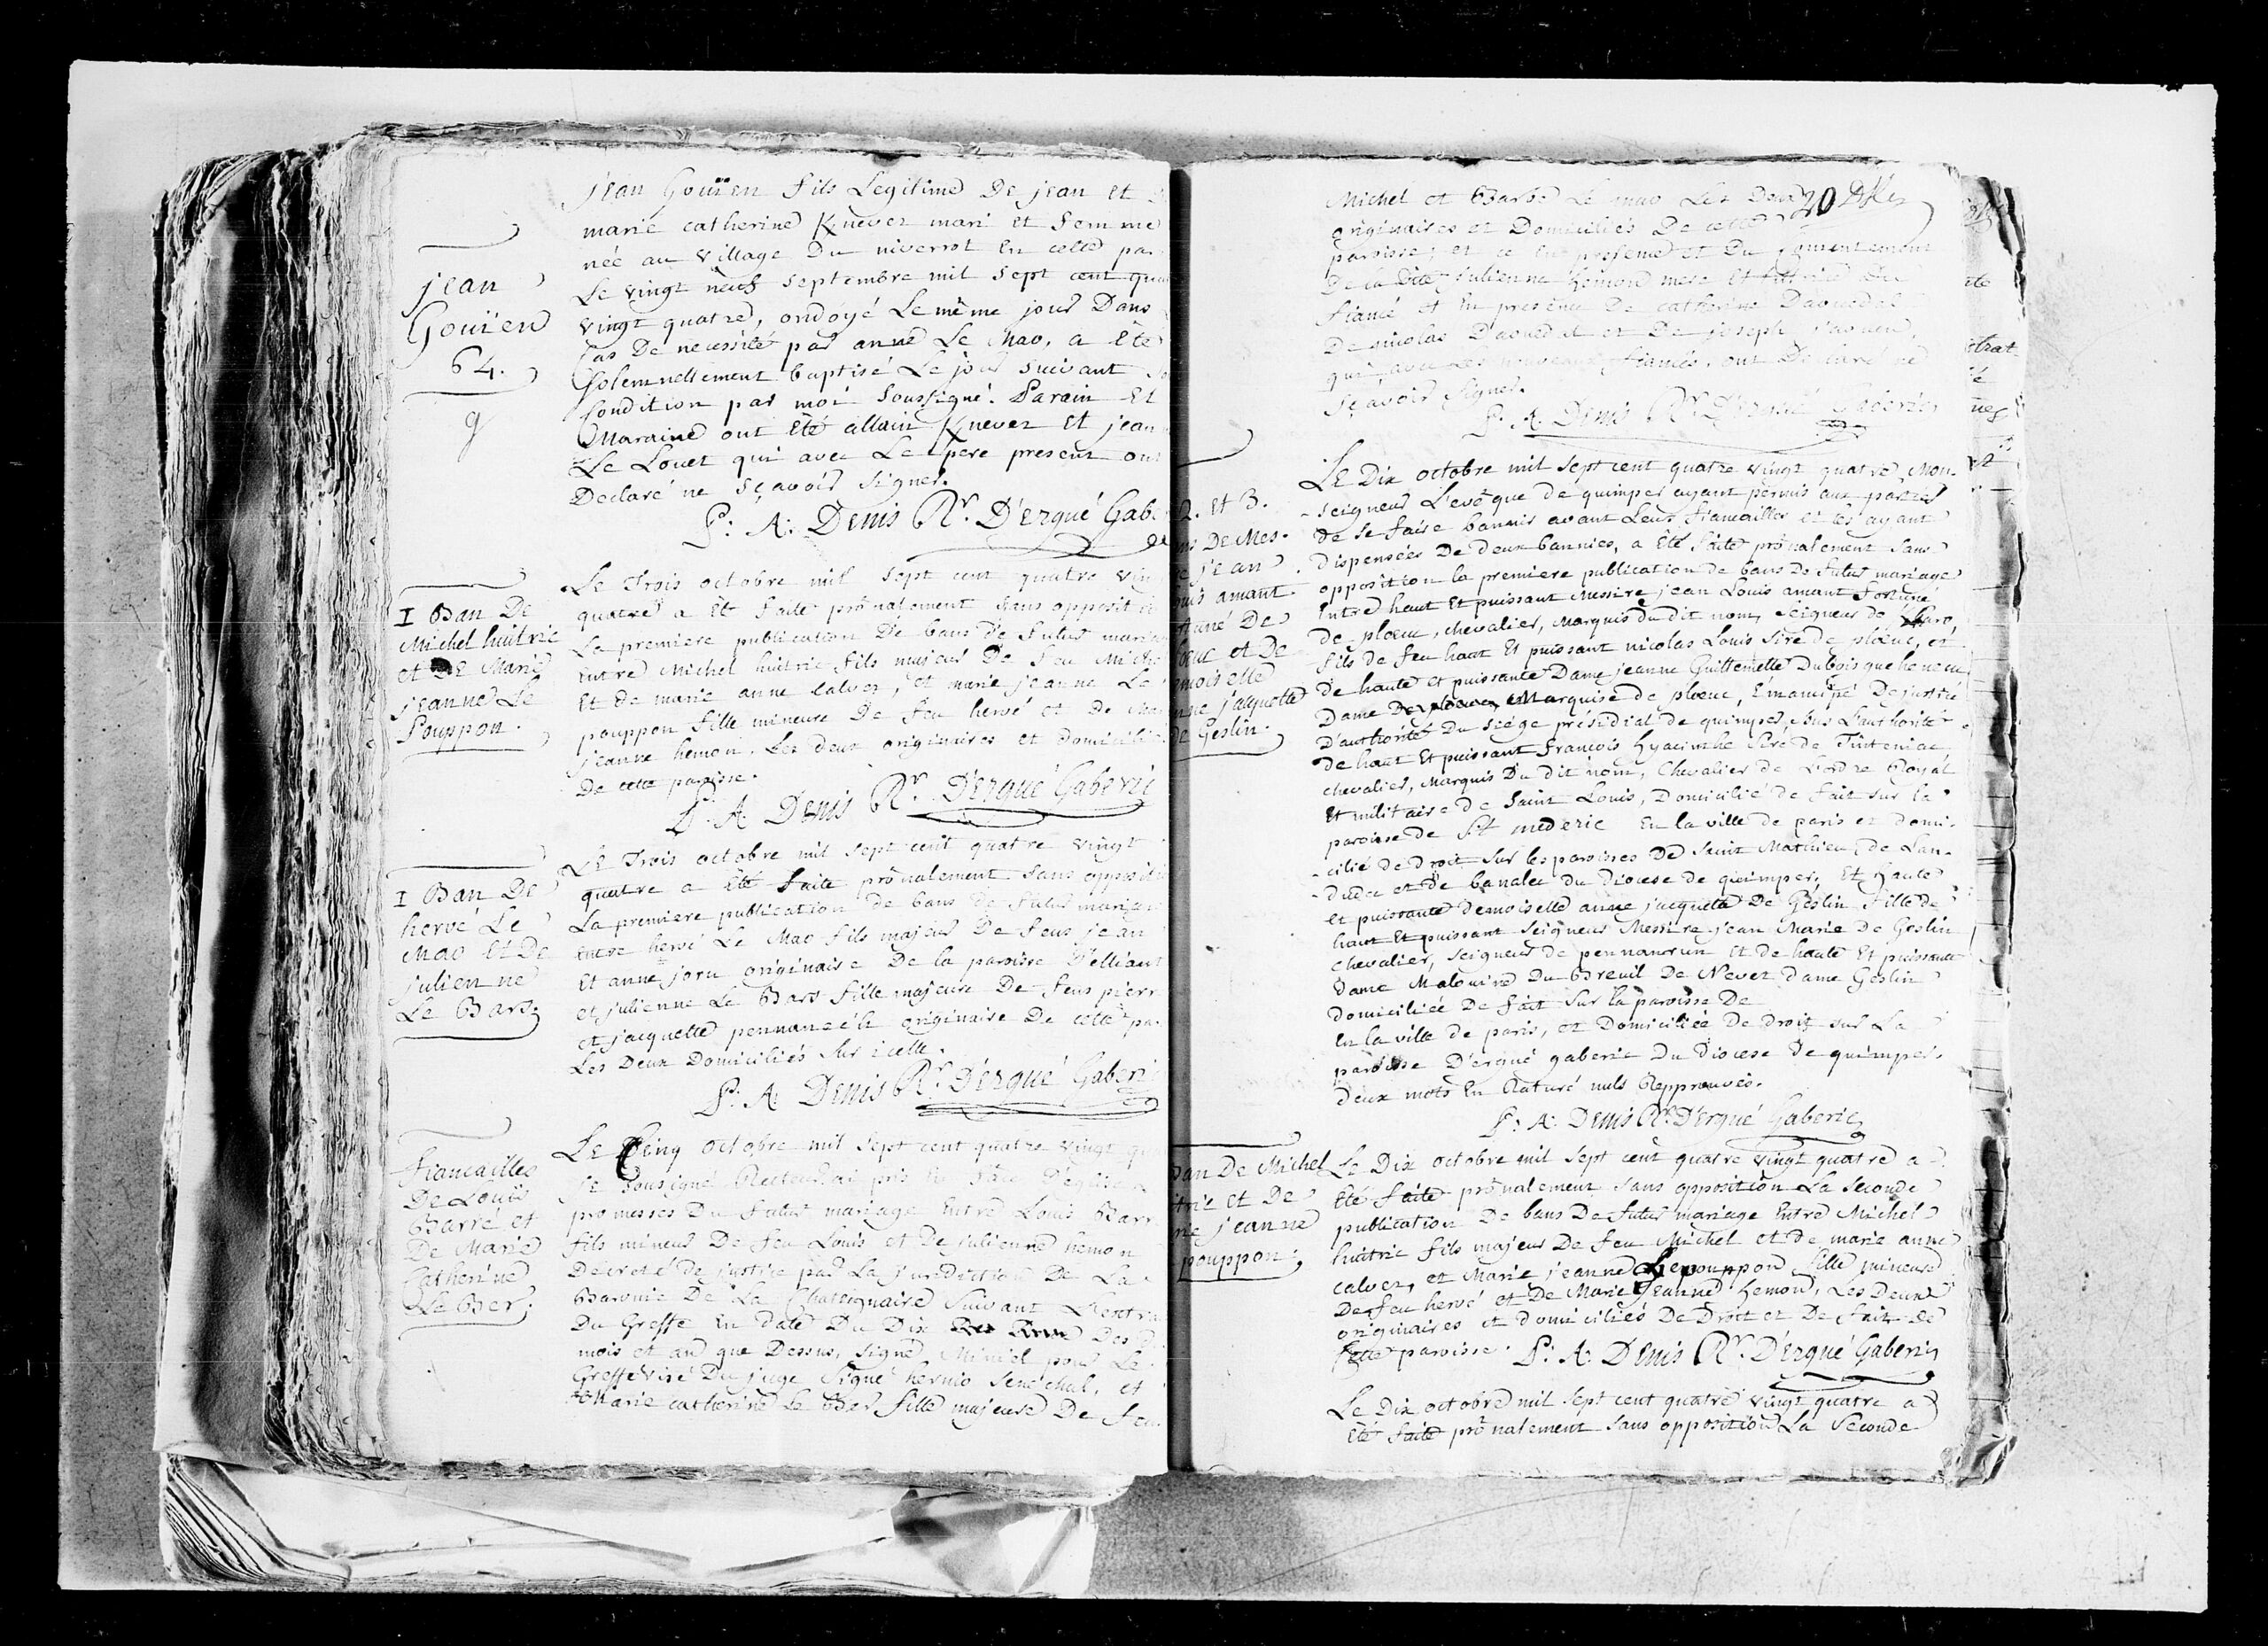 jean
Gouïen
64.
g
jean Gouïen fils Legitime De jean et
marie catherine Knevez mari et femme
née au village Du niverrot En cette par
Le vingt neuf septembre mil sept cent qua
vingt quatre, ondoyé Le même jour Dans
Cas De necessité par anne Le Mao, a Eté
Solemnellement baptisé Le jour suivant so
Condition par moi soussigné. Parain Et
Maraine ont Eté allain Knevez Et jean
Le Louet qui avec Le pere present ont
Declaré ne sçavoir signer.
P. A. Denis Rr. D'Ergué Gab
I Ban De
Michel huitric
et De Marie
jeanne Le
Pouppon.
Le Trois octobre mil sept cent quatre vin
quatre a Eté faite prônalement sans opposit
La premiere publication De bans De futur maria
Entre Michel huitric fils majeur De feu Miche
Et de marie anne calvez, et marie jeanne Le
pouppon fille mineure De feu hervé et De ma
jeanne hemon. Les deux originaires et domicilié
De cette paroisse.
P. A. Denis Rr. D'Ergué Gaberic
I Ban De
hervé Le
Mao et De
julienne
Le Bars.
Le Trois octobre mil sept cent quatre vingt
quatre a Eté faite prônalement sans oppositi
La premiere publication de bans de futur mariage
Entre hervé Le Mao fils majeur De feus jean
Et anne joru originaire De la paroisse D'elliant
et julienne Le Bars fille majeure De feus pierr
et jacquette pennaneac'h originaire De cette pa
Les Deux Domiciliés sur icelle.
P. A. Denis Rr. D'Ergué Gaberic
fiancailles
De Louis
Barré et
De Marie
Catherine
Le Ber.
Le Cinq octobre mil sept cent quatre vingt qua
je soussigné Recteur ai pris En face D'église
promesses Du futur mariage Entre Louis Barr
fils mineur De feu Louis et De julienne hemon
Decreté De justice par La jurediction De La
Baronie De La Chatignaire suivant L'extra
Du Greffe En date Du Dix Des D
mois et an que Dessus, signé Miniel pour Le
Greffe visé Du juge signé hervio senechal, et
Marie catherine Le Ber fille majeure De feu
20 Rlles
Michel et Barbe Le mao Les Deux
originaires et Domiciliés De cette
paroisse; et ce En presence et Du consentement
De la Dite julienne hemon mere Et tutrice Du
fiancé et En presence De catherine Daouedal
De nicolas Daouedal et De joseph
qui, avec Les nouveaux fiancés, ont Declaré ne
sçavoir signer.
P. A. Denis Rr. D'Ergué Gaberic
2. et 3.
ns De Mes-
e jean
ouis amant
rtuné De
oeuc et De
emoiselle
nne jacquette
de Geslin.
Le Dix octobre mil sept cent quatre vingt quatre Mon-
-seigneur L'evêque de quimper ayant permis aux parties
de se faire bannir avant Leur fiancailles et les ayant
dispensées De deux bannies, a Eté faite prônalement sans
opposition la premiere publication de bans De futur mariage
Entre haut Et puissant Messire jean Louis amant fortuné
de ploeuc, chevalier, Marquis du dit nom, seigneur de
fils de feu haut Et puissant nicolas Louis sire de ploeuc, et
de haute et puissante Dame jeanne Guillemette Dubois queheneuc
Dame De ploeuc, Marquise de ploeuc, Emancipé De justice
D'authorité Du siége présidial de quimper, sous L'authorité
de haut Et puissant François hyacinthe siré de Tinteniac
chevalier, Marquis Du dit nom, Chevalier de L'ordre Royal
Et militaire de Saint Louis, Domicilié de fait sur la
paroisse de St mederic En la ville de paris et domi-
-cilié de Droit sur les paroisses De Saint Mathieu, de Lan-
-dudec et de banalec du Diocese de quimper, Et haute
et puissante demoiselle anne jacquette De Geslin fille de
haut Et puissant seigneur Messire jean Marie de Geslin
chevalier, seigneur de pennanrun et de haute Et puissante
Dame Malouine Du Breuil De Nevez Dame Geslin
Domiciliée De fait sur la paroisse De
En la ville de paris, et Domiciliée De Droit sur La
paroisse D'ergué gaberic Du Diocese de quimper.
deux mots En Raturé nuls Repprouvés.
P. A. Denis Rr. D'Ergué Gaberic
Ban De Michel
itric et De
rie jeanne
pouppon.
Le Dix octobre mil sept cent quatre vingt quatre a
Eté faite prônalement sans opposition La seconde
publication De bans De futur mariage Entre Michel
huitric fils majeur De feu Michel et de marie anne
calvez, et Marie jeanne Le pouppon fille mineure
De feu hervé et De Marie jeanne hemon, Les Deux
originaires et domiciliés De Droit et De fait De
Cette paroisse. P. A. Denis Rr. D'Ergué Gaberic
Le Dix octobre mil sept cent quatre vingt quatre a
Eté faite prônalement sans opposition La seconde